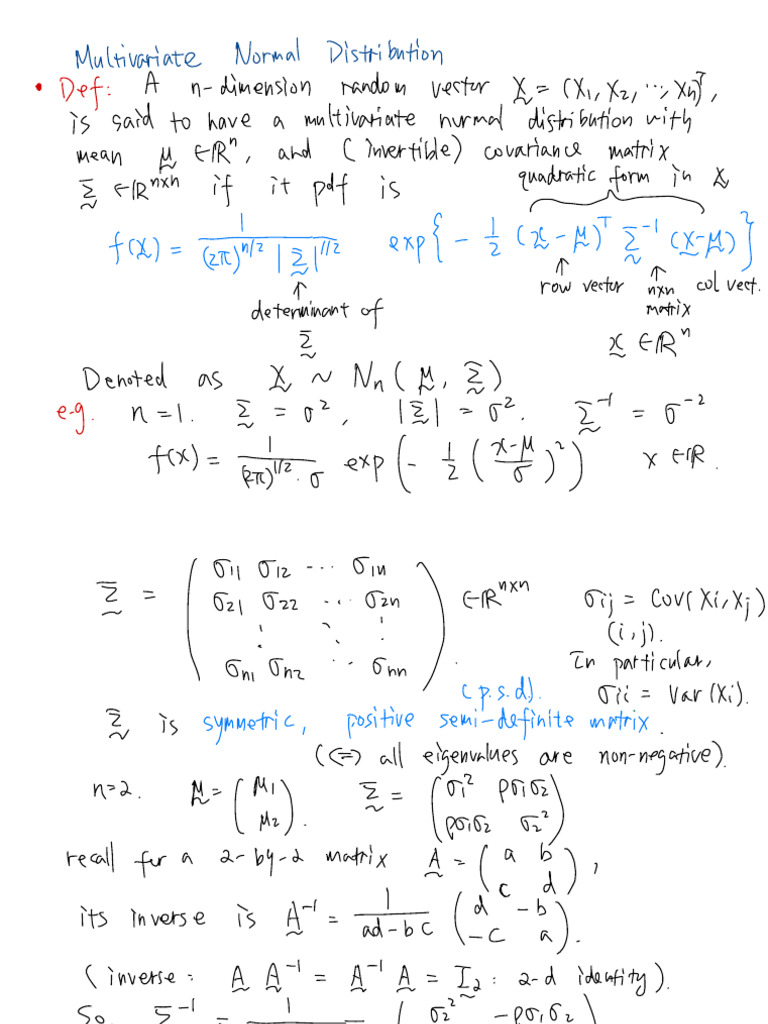 Multivariate Normal Distribution
• Def: A n-dimension random vector X̰ = (X₁, X₂, ···, Xn)ᵀ,
is said to have a multivariate normal distribution with
mean μ̰ ∈ ℝⁿ, and (invertible) covariance matrix
Σ̰ ∈ ℝⁿˣⁿ if it pdf is
quadratic form in X̰
f(x̰) = 1 / ((2π)^{n/2} |Σ̰|^{1/2}) exp{ - 1/2 (x̰ - μ̰)ᵀ Σ̰⁻¹ (x̰ - μ̰) }
↑ ↑ ↑
row vector n×n matrix col vect.
determinant of Σ̰
x̰ ∈ ℝⁿ
Denoted as X̰ ~ Nn(μ̰, Σ̰)
e.g. n=1. Σ̰ = σ², |Σ̰| = σ². Σ̰⁻¹ = σ⁻²
f(x) = 1 / ((2π)^{1/2} · σ) exp( - 1/2 ( (x-μ)/σ )² ) x ∈ ℝ.
Σ̰ = ( σ11 σ12 ··· σ1n
σ21 σ22 ··· σ2n
⋮ ⋮ ⋱ ⋮
σn1 σn2 ·· σnn ) ∈ ℝⁿˣⁿ.
σij = Cov(Xi, Xj)
(i, j).
In particular,
σii = Var(Xi).
(p.s.d).
Σ̰ is symmetric, positive semi-definite matrix.
(⇔ all eigenvalues are non-negative).
n=2. μ̰ = ( μ1
μ2 ). Σ̰ = ( σ1² ρσ1σ2
ρσ1σ2 σ2² )
recall for a 2-by-2 matrix A̰ = ( a b
c d ),
its inverse is A̰⁻¹ = 1 / (ad-bc) ( d -b
-c a ).
(inverse: A̰ A̰⁻¹ = A̰⁻¹ A̰ = Ḭ₂ : 2-d identity).
So Σ⁻¹ = 1 ( σ2² -ρσ1σ2 )